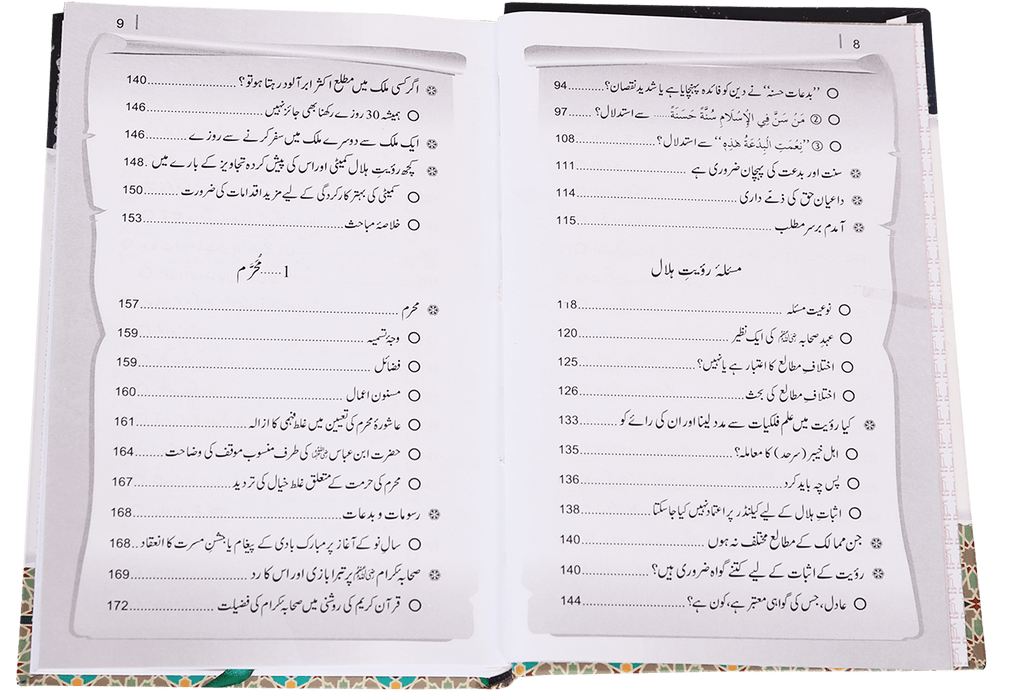 8
○ ’’بدعات حسنہ‘‘ نے دین کو فائدہ پہنچایا ہے یا شدید نقصان؟ ........ 94
○ ② مَنْ سَنَّ فِي الْإِسْلَامِ سُنَّةً حَسَنَةً ...... سے استدلال؟ ........ 97
○ ③ ’’نِعْمَتِ الْبِدْعَةُ هٰذِهٖ‘‘ سے استدلال؟ ........ 108
❋ سنت اور بدعت کی پہچان ضروری ہے ........ 111
❋ داعیان حق کی ذمّے داری ........ 114
❋ آمدم برسر مطلب ........ 115
مسئلۂ رؤیتِ ہلال
○ نوعیت مسئلہ ........ 118
○ عہدِ صحابہ رضی اللہ عنہم کی ایک نظیر ........ 120
○ اختلافِ مطالع کا اعتبار ہے یا نہیں؟ ........ 125
○ اختلافِ مطالع کی بحث ........ 126
❋ کیا رؤیت میں علم فلکیات سے مدد لینا اور ان کی رائے کو ........ 133
○ اہل خیبر (سرحد) کا معاملہ؟ ........ 135
○ پس چہ باید کرد ........ 136
○ اثباتِ ہلال کے لیے کیلنڈر پر اعتماد نہیں کیا جاسکتا ........ 138
❋ جن ممالک کے مطالع مختلف نہ ہوں ........ 140
❋ رؤیت کے اثبات کے لیے کتنے گواہ ضروری ہیں؟ ........ 140
○ عادل، جس کی گواہی معتبر ہے، کون ہے؟ ........ 144
9
❋ اگر کسی ملک میں مطلع اکثر ابر آلود رہتا ہو تو؟ ........ 140
○ ہمیشہ 30 روزے رکھنا بھی جائز نہیں ........ 146
❋ ایک ملک سے دوسرے ملک میں سفر کرنے سے روزے ........ 146
❋ کچھ رؤیتِ ہلال کمیٹی اور اس کی پیش کردہ تجاویز کے بارے میں . 148
○ کمیٹی کی بہتر کارکردگی کے لیے مزید اقدامات کی ضرورت ........ 150
○ خلاصۂ مباحث ........ 153
1 ...... مُحَرَّم
❋ محرم ........ 157
○ وجۂ تسمیہ ........ 159
○ فضائل ........ 159
○ مسنون اعمال ........ 160
○ عاشورۂ محرم کی تعیین میں غلط فہمی کا ازالہ ........ 161
○ حضرت ابن عباس رضی اللہ عنہما کی طرف منسوب موقف کی وضاحت ........ 164
○ محرم کی حرمت کے متعلق غلط خیال کی تردید ........ 167
❋ رسومات و بدعات ........ 168
○ سالِ نو کے آغاز پر مبارک بادی کے پیغام یا جشنِ مسرت کا انعقاد .. 168
❋ صحابہ کرام رضی اللہ عنہم پر تبرا بازی اور اس کا رد ........ 169
○ قرآن کریم کی روشنی میں صحابہ کرام کی فضیلت ........ 172